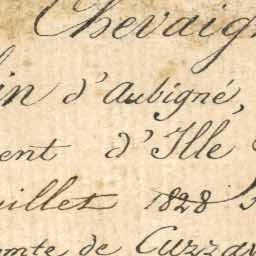 Chevaign
lin d'aubigné,
ent d'Ille
uillet 1828
omte de Cuzzay